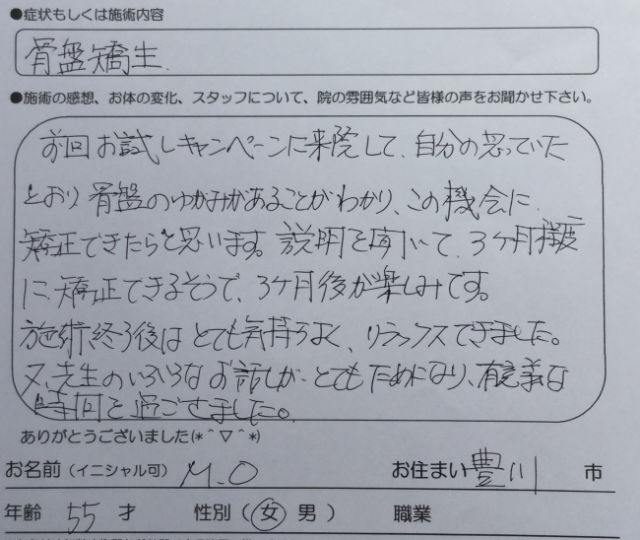 ●症状もしくは施術内容
骨盤矯生.
●施術の感想、お体の変化、スタッフについて、院の雰囲気など皆様の声をお聞かせ下さい。
前回お試しキャンペーンに来院して、自分の思っていた
とおり骨盤のゆがみがあることがわかり、この機会に、
矯正できたらと思います。説明を聞いて、3ヶ月程度
に矯正できるそうで、3ヶ月後が楽しみです。
施術終了後はとても気持ちよく、リラックスできました。
又、先生のいろいろなお話しが、とてもためになり、有意義な
時間を過ごせました。
ありがとうございました(*＾▽＾*)
お名前(イニシャル可) M.O お住まい 豊川 市
年齢 55 才 性別(女 男) 職業